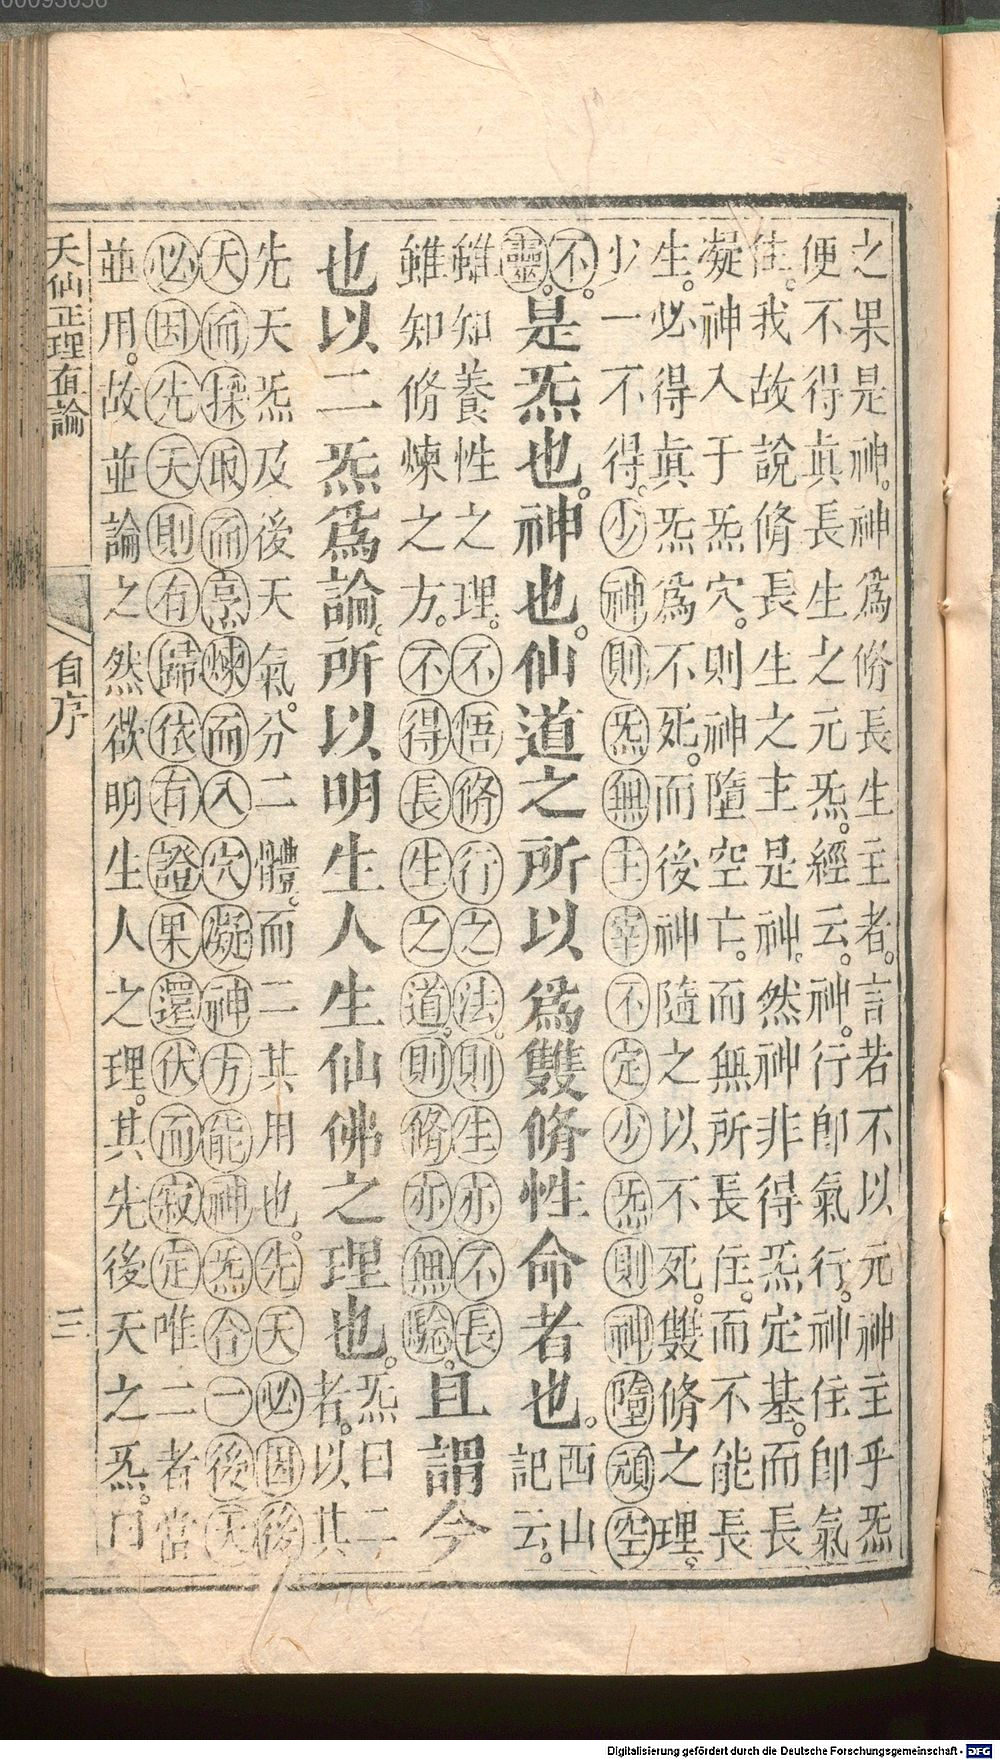 之果是神。神爲脩長生主者。言若不以元神主乎炁
便不得眞長生之元炁。經云。神。行卽氣行。神住卽氣
住。我故說脩長生之主是神。然神非得炁定基。而長
凝神入于炁穴。則神墮空亡。而無所長住。而不能長
生。必得眞炁爲不死。而後神隨之以不死。雙脩之理。
少一不得。少神則炁無主宰不定少炁則神墮頑空
不。
靈。
是炁也。神也。仙道之所以爲雙脩性命者也。
西山
記云。
雖知養性之理。不悟脩行之法。則生亦不長
雖知脩煉之方。不得長生之道。則脩亦無驗。
且謂今
也以二炁爲論。所以明生人生仙佛之理也。
炁曰二
者。以其
先天炁及後天氣。分二體。而二其用也。先天必因後
天而採取而烹煉而入穴凝神方能神炁合一後天
必因先天則有歸依有證果還伏而寂定唯二者當
並用。故並論之然欲明生人之理。其先後天之炁。曰
天仙正理直論
自序
三
Digitalisierung gefördert durch die Deutsche Forschungsgemeinschaft - DFG